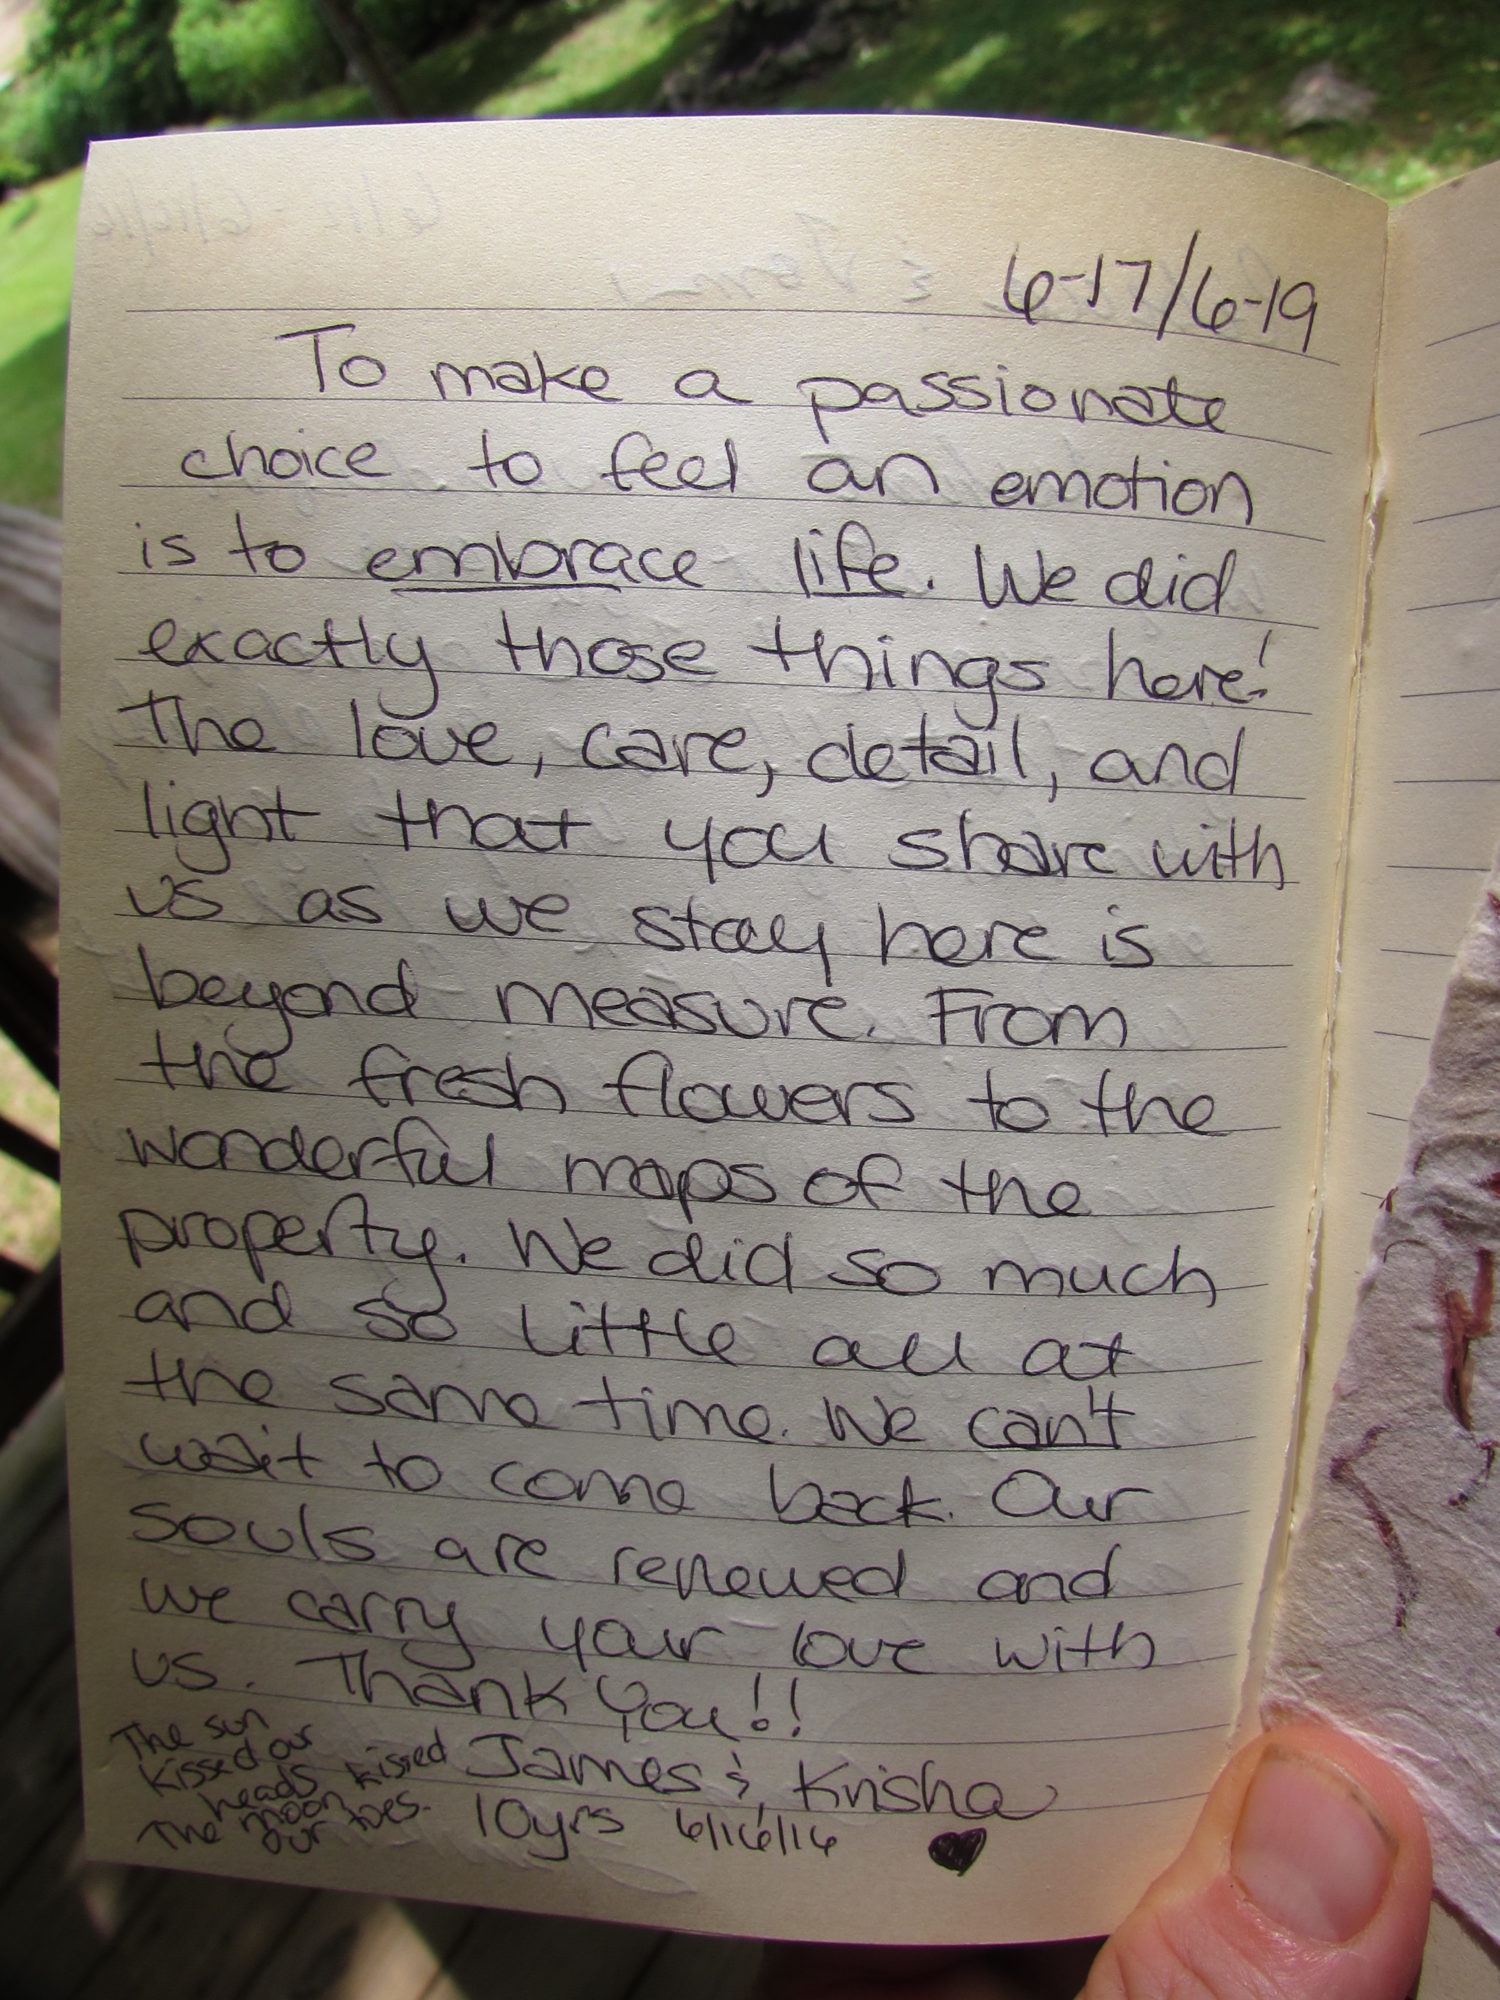 6-17/6-19
To make a passionate
choice to feel an emotion
is to embrace life. We did
exactly those things here!
The love, care, detail, and
light that you share with
us as we stay here is
beyond measure. From
the fresh flowers to the
wonderful maps of the
property. We did so much
and so little all at
the same time. We can't
wait to come back. Our
souls are renewed and
we carry your love with
us. Thank You!!
James & Krisha
10yrs 6/16/16
The sun
kissed our
heads
The moon kissed
our toes.